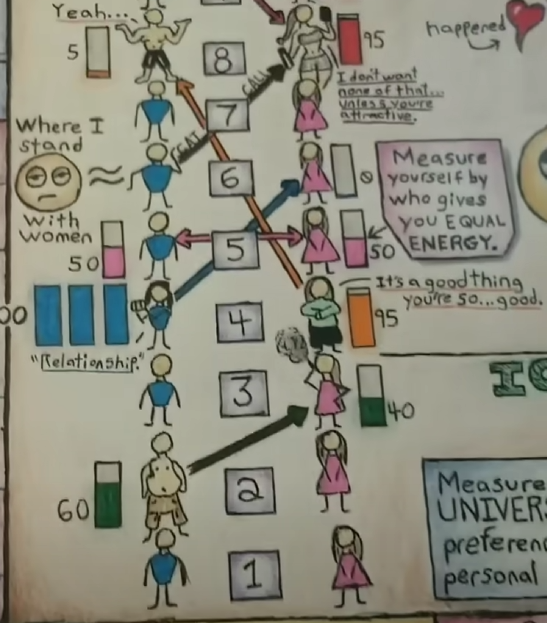 Yeah...
5
8
95
happened
I don't want
none of that...
unless you're
attractive.
CALL
7
SEAT
Where I
stand
≈
6
0
Measure
yourself by
who gives
you EQUAL
ENERGY.
With
women
50
5
50
00
"Relationship."
4
It's a good thing
you're so...good.
95
3
40
60
2
Measure
UNIVERS
preferen
personal
1